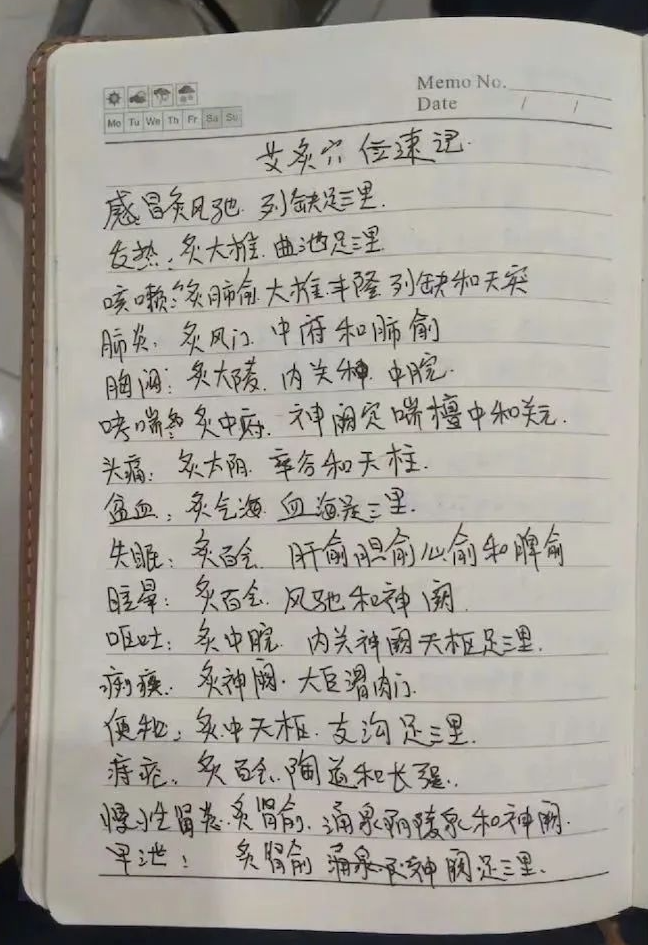 Memo No.
Date / /
Mo Tu We Th Fr Sa Su
艾炙穴位速记
感冒炙风驰 列缺足三里.
发热:炙大椎 曲池足三里
咳嗽:炙肺俞 大椎丰隆 列缺和天突
肺炎:炙风门 中府和肺俞
胸闷:炙大陵 内关和 中脘.
哮喘 炙中府 神阙定喘檀中和关元.
头痛:炙太阳 率谷和天柱.
盆血:炙气海 血海足三里.
失眠:炙百会 肝俞胆俞心俞和脾俞
眩晕:炙百会 风驰和神阙.
呕吐:炙中脘 内关神阙天枢足三里.
炙神阙·大巨滑肉门.
便秘:炙中天枢.支沟足三里.
痔疮:炙百会.陶道和长强.
慢性肾炎.炙肾俞.涌泉阴陵泉和神阙.
早泄:炙肾俞 神阙足三里.